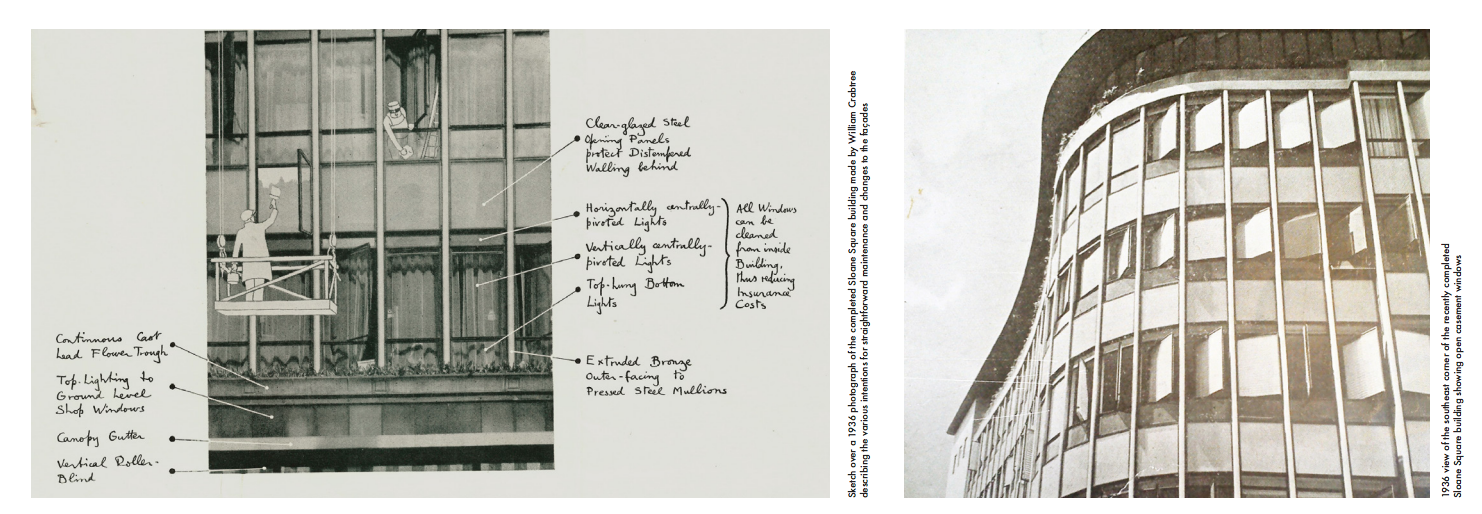 Clear-glazed Steel
Opening Panels
protect Distempered
Walling behind
Horizontally centrally-
pivoted Lights
Vertically centrally-
pivoted Lights
Top-hung Bottom
Lights
All Windows
can be
cleaned
from inside
Building,
thus reducing
Insurance
Costs
Extruded Bronze
Outer-facing to
Pressed Steel Mullions
Continuous Cast
Lead Flower Trough
Top-Lighting to
Ground Level
Shop Windows
Canopy Gutter
Vertical Roller-
Blind
Sketch over a 1936 photograph of the completed Sloane Square building made by William Crabtree
describing the various intentions for straightforward maintenance and changes to the façades
1936 view of the southeast corner of the recently completed
Sloane Square building showing open casement windows